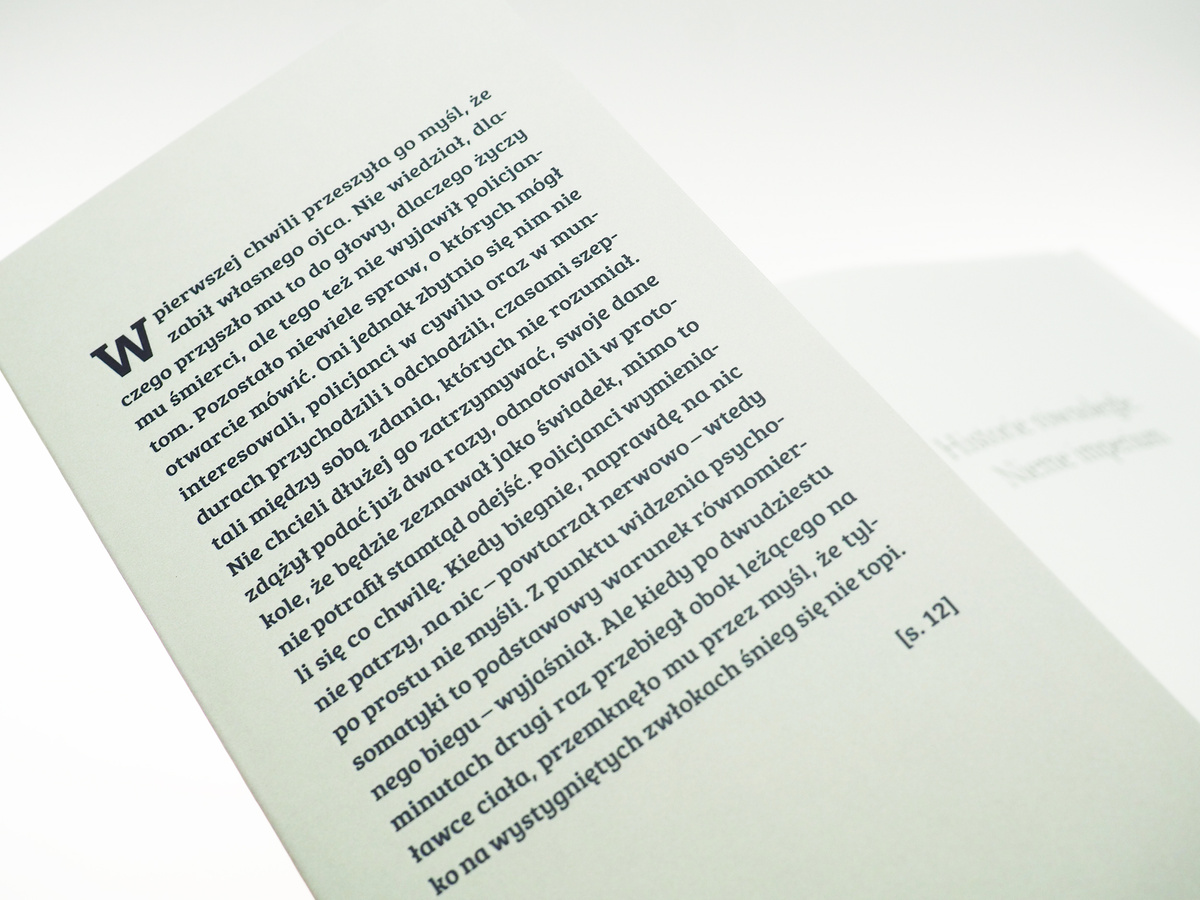 W pierwszej chwili przeszyła go myśl, że
zabił własnego ojca. Nie wiedział, dla-
czego przyszło mu to do głowy, dlaczego życzy
mu śmierci, ale tego też nie wyjawił policjan-
tom. Pozostało niewiele spraw, o których mógł
otwarcie mówić. Oni jednak zbytnio się nim nie
interesowali, policjanci w cywilu oraz w mun-
durach przychodzili i odchodzili, czasami szep-
tali między sobą zdania, których nie rozumiał.
Nie chcieli dłużej go zatrzymywać, swoje dane
zdążył podać już dwa razy, odnotowali w proto-
kole, że będzie zeznawał jako świadek, mimo to
nie potrafił stamtąd odejść. Policjanci wymienia-
li się co chwilę. Kiedy biegnie, naprawdę na nic
nie patrzy, na nic – powtarzał nerwowo – wtedy
po prostu nie myśli. Z punktu widzenia psycho-
somatyki to podstawowy warunek równomier-
nego biegu – wyjaśniał. Ale kiedy po dwudziestu
minutach drugi raz przebiegł obok leżącego na
ławce ciała, przemknęło mu przez myśl, że tyl-
ko na wystygniętych zwłokach śnieg się nie topi.
[s. 12]